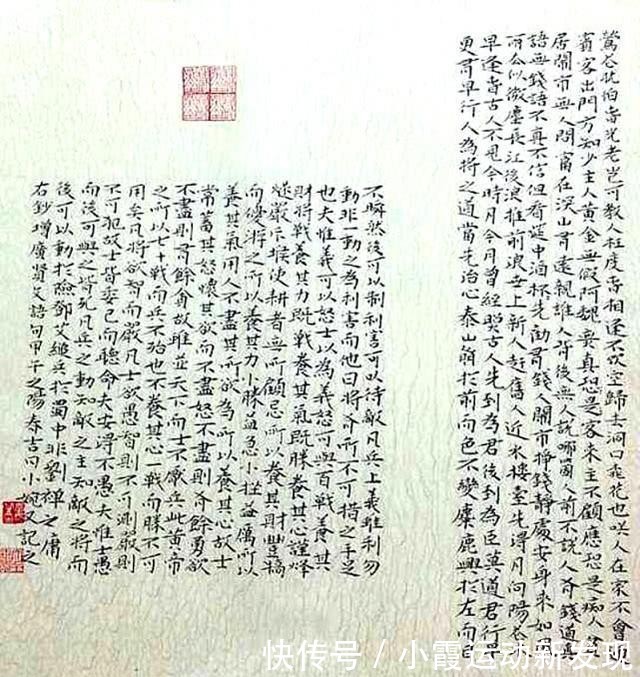 鶯花犹怕春光老岂可教人枉度春相逢不飲空歸去洞口桃花也咲人在家不會迎
賓客出門方知少主人黃金無假阿魏無真恐是客來主不顧應恐是痴人貧
居鬧市無人問富在深山有遠親誰人背後無人說哪個人前不說人有錢道真
語無錢語不真不信但看筵中酒杯先勸有錢人鬧市掙錢靜處安身來如風
雨去似微塵長江後浪推前浪世上新人趕舊人近水樓臺先得月向陽花木
早逢春古人不見今時月今月曾經照古人先到為君後到為臣莫道君行早
更有早行人為將之道當先治心泰山崩於前而色不變麋鹿興於左而目
不瞬然後可以制利害可以待敵凡兵上義雖利勿
動非一動之為利害而他日將有所不可措之手足
也夫惟義可以怒士以為義怒可與百戰養其
財將戰養其力既戰養其氣既勝養其心謹烽
燧嚴斥堠使耕者無所顧忌所以養其財豐犒
而優游之所以養其力小勝益急小挫益厲所以
養其氣用人不盡其所欲為所以養其心故士
常蓄其怒懷其欲而不盡怒不盡則有餘勇欲
不盡則有餘貪故雖並天下而士不厭兵此黃帝
之所以七十戰而兵不殆也不養其心一戰而勝不可
用矣凡將欲智而嚴凡士欲愚智則不可測嚴則
不可犯故士皆委己而聽命夫安得不愚夫惟士愚
而後可與之皆死凡兵之動知敵之主知敵之將而
後可以動於險鄧艾縋兵於蜀中非劉禪之庸
右鈔增廣賢文語句甲午之陽春吉日小婉又記之
快传号 / 小霞运动新发现